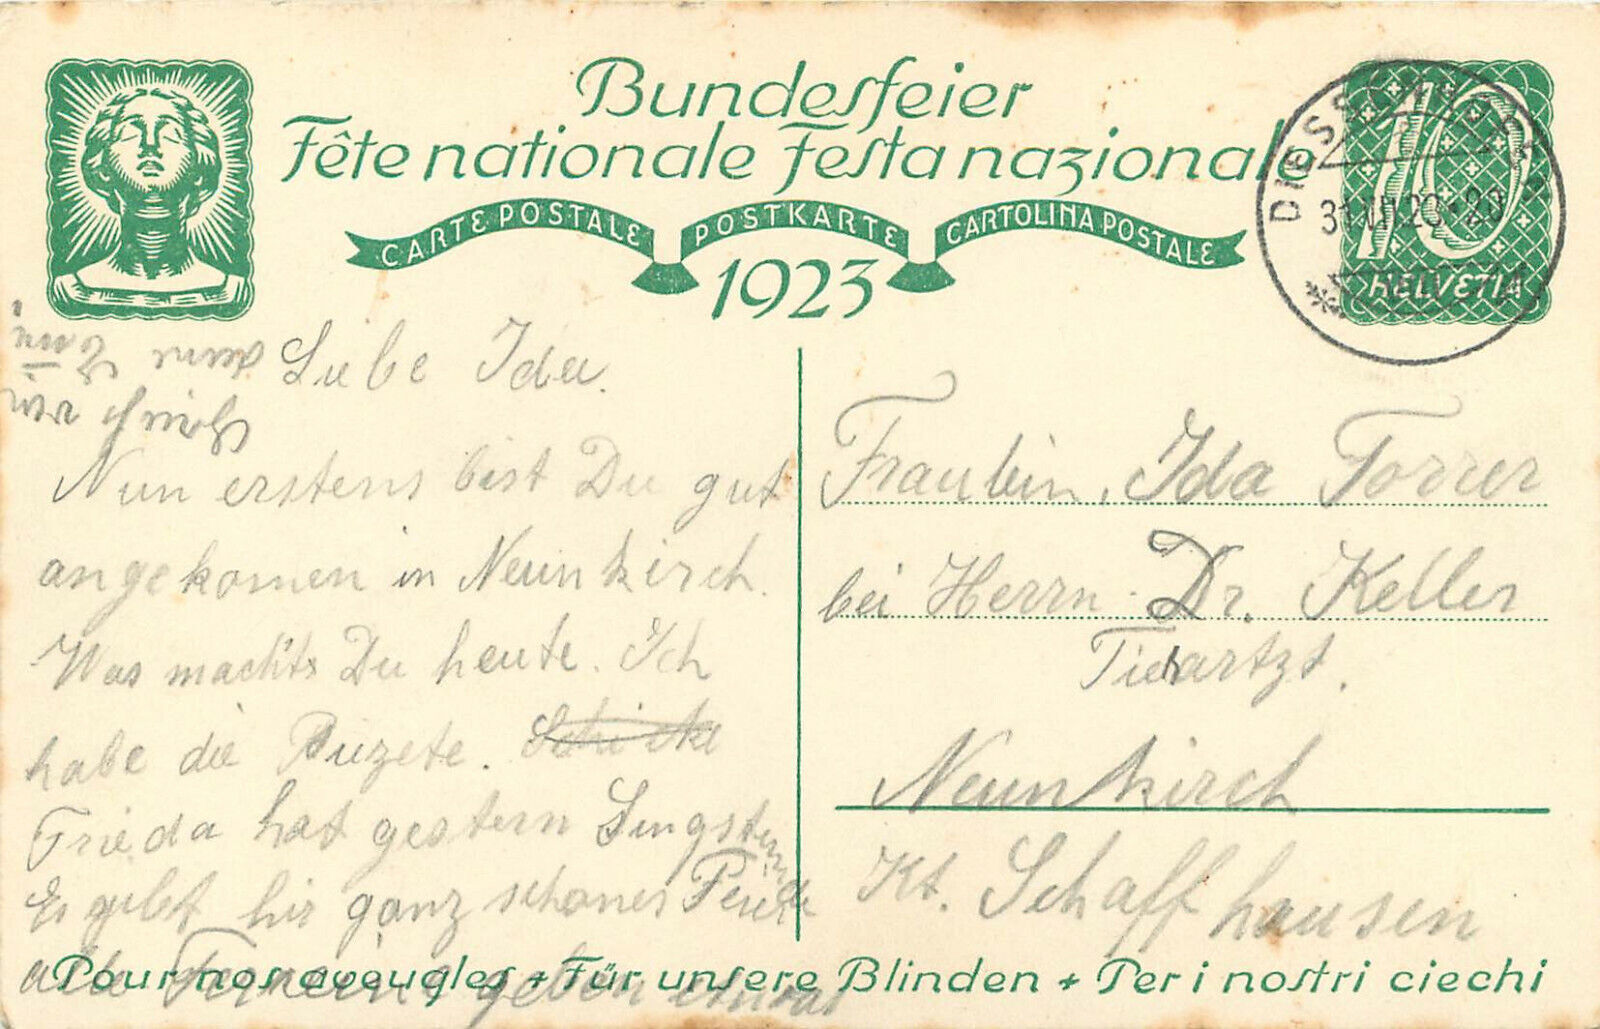 Bundesfeier
Fête nationale Festa nazionale
CARTE POSTALE POSTKARTE CARTOLINA POSTALE
1923
10
HELVETIA
DIESSENHOFEN
Liebe Ida.
Nun erstens bist Du gut
angekomen in Neunkirch.
Was machts Du heute. Ich
habe die
Frieda hat gestern
Es gibt hir ganz schönes
alle geben etwas
Fraulein, Ida Forrer
bei Herrn Dr. Keller
Tierartzt.
Neunkirch
Kt. Schaffhausen
Pour nos aveugles + Für unsere Blinden + Per i nostri ciechi